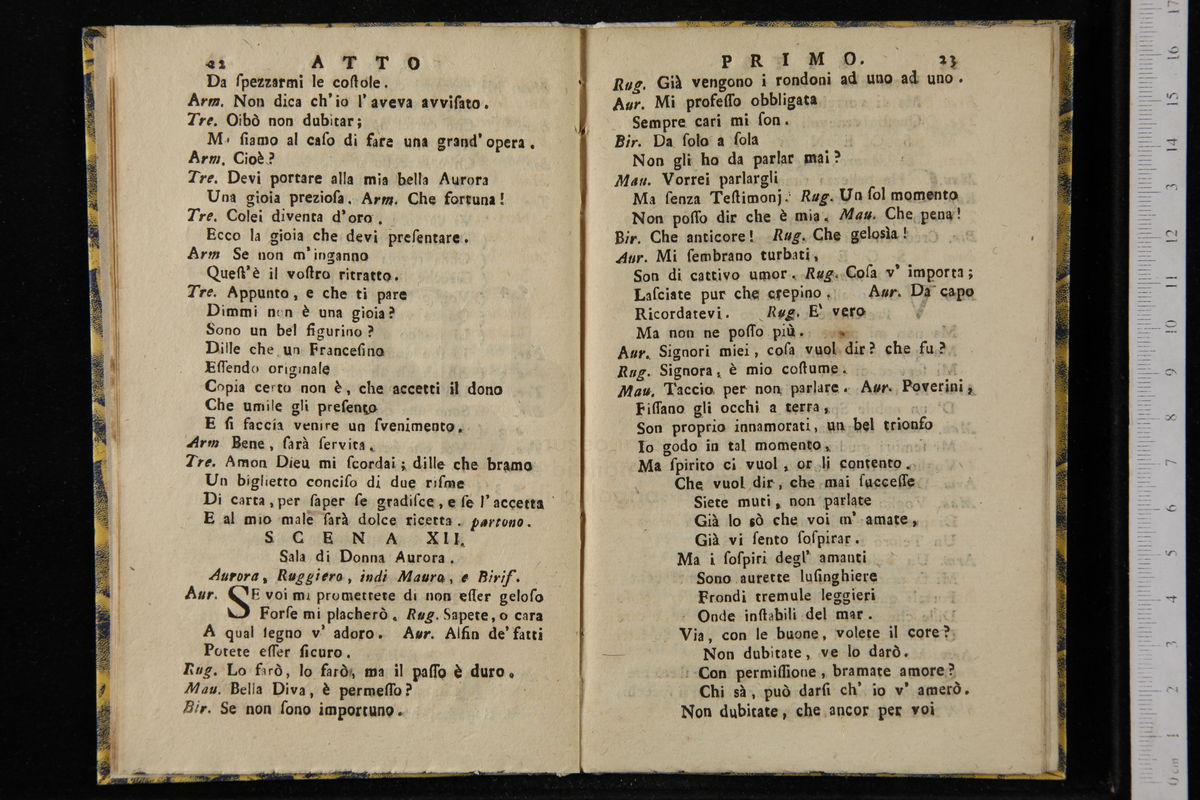 22 ATTO
Da ſpezzarmi le coſtole.
Arm. Non dica ch' io l' aveva avviſato.
Tre. Oibò non dubitar;
Ma ſiamo al caſo di fare una grand' opera.
Arm. Cioè?
Tre. Devi portare alla mia bella Aurora
Una gioia prezioſa. Arm. Che fortuna!
Tre. Colei diventa d' oro.
Ecco la gioia che devi preſentare.
Arm Se non m' inganno
Queſt' è il voſtro ritratto.
Tre. Appunto, e che ti pare
Dimmi non è una gioia?
Sono un bel figurino?
Dille che un Franceſino
Eſſendo originale
Copia certo non è, che accetti il dono
Che umile gli preſento
E ſi faccia venire un ſvenimento.
Arm Bene, ſarà ſervita.
Tre. Amon Dieu mi ſcordai; dille che bramo
Un biglietto conciſo di due riſme
Di carta, per ſaper ſe gradiſce, e ſe l' accetta
E al mio male ſarà dolce ricetta. partono.
SCENA XII.
Sala di Donna Aurora.
Aurora, Ruggiero, indi Mauro, e Biriſ.
Aur. SE voi mi promettete di non eſſer geloſo
Forſe mi placherò. Rug. Sapete, o cara
A qual ſegno v' adoro. Aur. Alfin de' fatti
Potete eſſer ſicuro.
Rug. Lo farò, lo farò, ma il paſſo è duro.
Mau. Bella Diva, è permeſſo?
Bir. Se non ſono importuno.
PRIMO. 23
Rug. Già vengono i rondoni ad uno ad uno.
Aur. Mi profeſſo obbligata
Sempre cari mi ſon.
Bir. Da ſolo a ſola
Non gli ho da parlar mai?
Mau. Vorrei parlargli
Ma ſenza Teſtimonj. Rug. Un ſol momento
Non poſſo dir che è mia. Mau. Che pena!
Bir. Che anticore! Rug. Che geloſìa!
Aur. Mi ſembrano turbati,
Son di cattivo umor. Rug. Coſa v' importa;
Laſciate pur che crepino. Aur. Da capo
Ricordatevi. Rug. E' vero
Ma non ne poſſo più.
Aur. Signori miei, coſa vuol dir? che fu?
Rug. Signora, è mio coſtume.
Mau. Taccio per non parlare. Aur. Poverini,
Fiſſano gli occhi a terra,
Son proprio innamorati, un bel trionfo
Io godo in tal momento,
Ma ſpirito ci vuol, or li contento.
Che vuol dir, che mai ſucceſſe
Siete muti, non parlate
Già lo sò che voi m' amate,
Già vi ſento ſoſpirar.
Ma i ſoſpiri degl' amanti
Sono aurette luſinghiere
Frondi tremule leggieri
Onde inſtabili del mar.
Via, con le buone, volete il core?
Non dubitate, ve lo darò.
Con permiſſione, bramate amore?
Chi sà, può darſi ch' io v' amerò.
Non dubitate, che ancor per voi